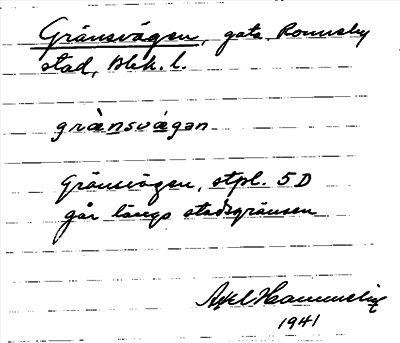 Gränsvägen, gata. Ronneby
stad, Blek. l.
grä̀nsvä́gən
Gränsvägen, stpl. 5D
går längs stadsgränsen
Axel
1941